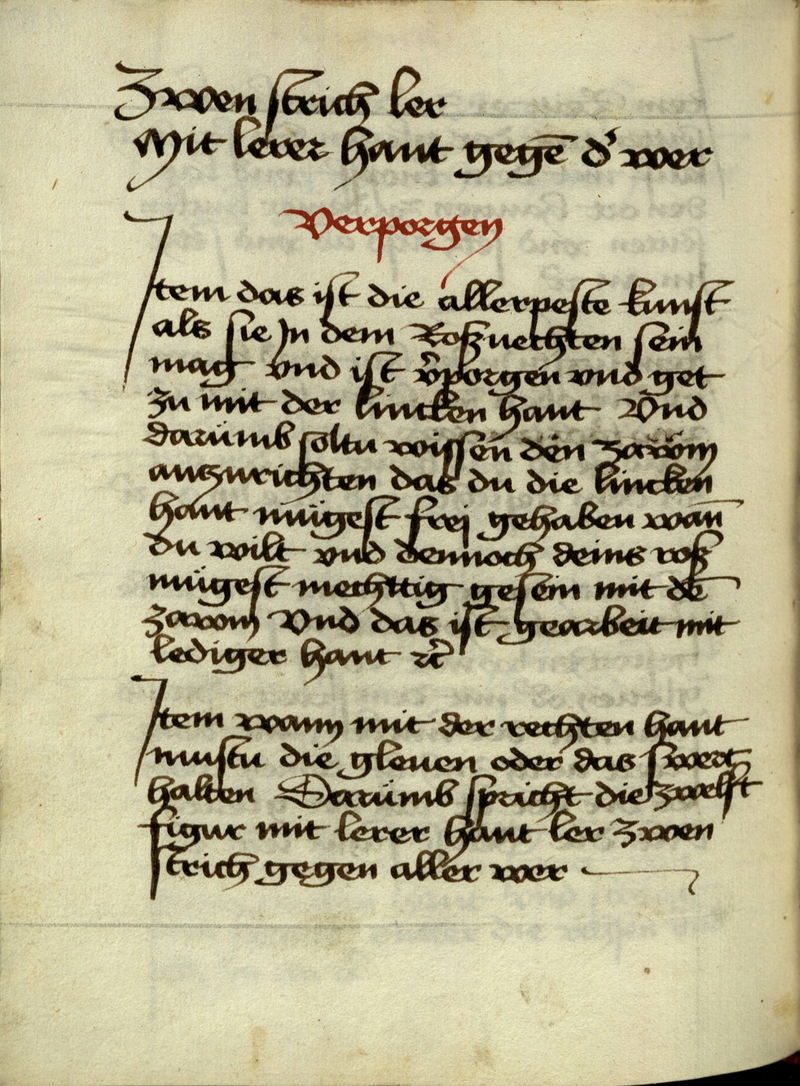 Zwen strich ler
Mit lerer hant gegē dʼ wer
Verporgen
Item das ist die allerpeste kunst
als sie Jn dem Roßuechten sein
mag vnd ist v̾porgen vnd get
zu mit der lincken hant Vnd
darümb soltu wissen den zawm
anzurichten das du die lincken
hant mügest frej gehaben wan̄
du wilt vnd dennoch deins roß
mügest mechttig gesein mit dē
zawm Vnd das ist gearbeit mit
lediger hant ꝛc̃
Item wann mit der rechten hant
mustu die gleuen oder das swert
halten Darümb spricht die zwelft
figur mit lerer hant ler zwen
strich gegen aller wer